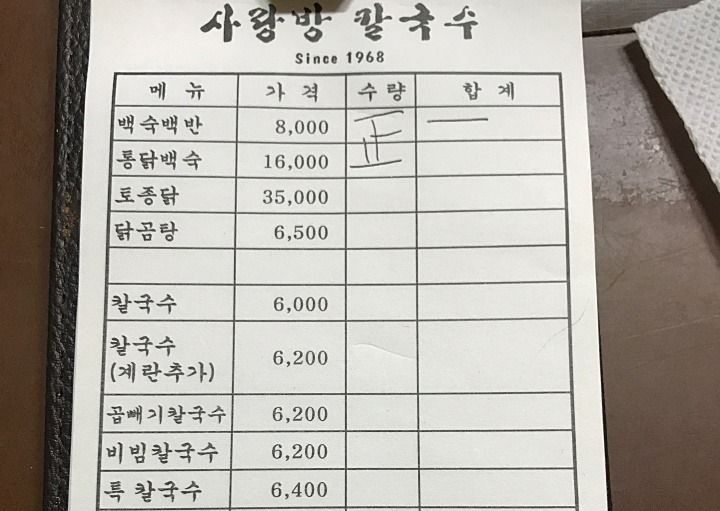 사랑방 칼국수
Since 1968
메뉴 가격 수량 합계
백숙백반 8,000 正 一
통닭백숙 16,000
토종닭 35,000
닭곰탕 6,500
칼국수 6,000
칼국수
(계란추가) 6,200
곱빼기칼국수 6,200
비빔칼국수 6,200
특 칼국수 6,400